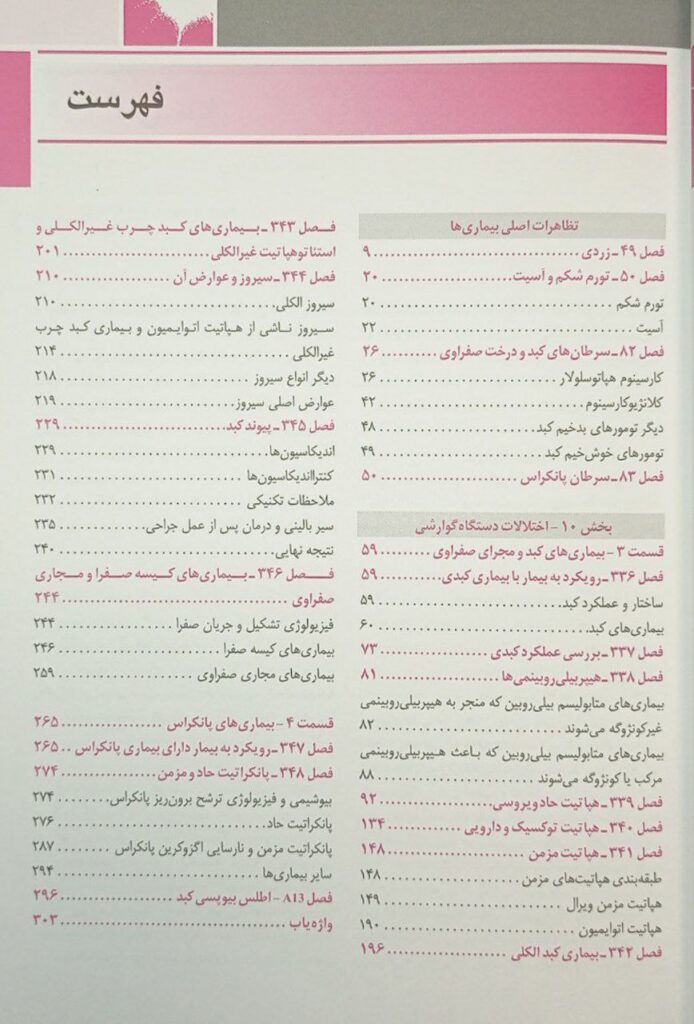 فهرست
تظاهرات اصلی بیماری‌ها
فصل ۴۹ ـ زردی ........................................ ۹
فصل ۵۰ ـ تورم شکم و آسیت ........................ ۲۰
تورم شکم ........................................ ۲۰
آسیت ........................................ ۲۲
فصل ۸۲ ـ سرطان‌های کبد و درخت صفراوی .......... ۲۶
کارسینوم هپاتوسلولار ........................ ۲۶
کلانژیوکارسینوم ........................ ۴۲
دیگر تومورهای بدخیم کبد ........................ ۴۸
تومورهای خوش‌خیم کبد ........................ ۴۹
فصل ۸۳ ـ سرطان پانکراس ........................ ۵۰
بخش ۱۰ - اختلالات دستگاه گوارشی
قسمت ۳ - بیماری‌های کبد و مجرای صفراوی .......... ۵۹
فصل ۳۳۶ ـ رویکرد به بیمار با بیماری کبدی .......... ۵۹
ساختار و عملکرد کبد ........................ ۵۹
بیماری‌های کبد ........................ ۶۰
فصل ۳۳۷ ـ بررسی عملکرد کبدی .................. ۷۳
فصل ۳۳۸ ـ هیپربیلی‌روبینمی‌ها .................. ۸۱
بیماری‌های متابولیسم بیلی‌روبین که منجر به هیپربیلی‌روبینمی
غیرکونژوگه می‌شوند ........................ ۸۲
بیماری‌های متابولیسم بیلی‌روبین که باعث هیپربیلی‌روبینمی
مرکب یا کونژوگه می‌شوند ........................ ۸۸
فصل ۳۳۹ ـ هپاتیت حاد ویروسی .................. ۹۲
فصل ۳۴۰ ـ هپاتیت توکسیک و دارویی ............ ۱۳۴
فصل ۳۴۱ ـ هپاتیت مزمن ........................ ۱۴۸
طبقه‌بندی هپاتیت‌های مزمن .................. ۱۴۸
هپاتیت مزمن ویرال ........................ ۱۴۹
هپاتیت اتوایمیون ........................ ۱۹۰
فصل ۳۴۲ ـ بیماری کبد الکلی .................. ۱۹۶
فصل ۳۴۳ ـ بیماری‌های کبد چرب غیرالکلی و
استئاتوهپاتیت غیرالکلی ........................ ۲۰۱
فصل ۳۴۴ ـ سیروز و عوارض آن .................. ۲۱۰
سیروز الکلی ........................ ۲۱۰
سیروز ناشی از هپاتیت اتوایمیون و بیماری کبد چرب
غیرالکلی ........................ ۲۱۴
دیگر انواع سیروز ........................ ۲۱۸
عوارض اصلی سیروز ........................ ۲۱۹
فصل ۳۴۵ ـ پیوند کبد ........................ ۲۲۹
اندیکاسیون‌ها ........................ ۲۲۹
کنترااندیکاسیون‌ها ........................ ۲۳۱
ملاحظات تکنیکی ........................ ۲۳۲
سیر بالینی و درمان پس از عمل جراحی ............ ۲۳۵
نتیجه نهایی ........................ ۲۴۰
فصل ۳۴۶ ـ بیماری‌های کیسه صفرا و مجاری
صفراوی ........................ ۲۴۴
فیزیولوژی تشکیل و جریان صفرا .................. ۲۴۴
بیماری‌های کیسه صفرا ........................ ۲۴۶
بیماری‌های مجاری صفراوی .................. ۲۵۹
قسمت ۴ - بیماری‌های پانکراس .................. ۲۶۵
فصل ۳۴۷ ـ رویکرد به بیمار دارای بیماری پانکراس .. ۲۶۵
فصل ۳۴۸ ـ پانکراتیت حاد و مزمن .................. ۲۷۴
بیوشیمی و فیزیولوژی ترشح برون‌ریز پانکراس ........ ۲۷۴
پانکراتیت حاد ........................ ۲۷۶
پانکراتیت مزمن و نارسایی اگزوکرین پانکراس ........ ۲۸۷
سایر بیماری‌ها ........................ ۲۹۴
فصل A13 - اطلس بیوپسی کبد .................. ۲۹۶
واژه‌یاب ........................ ۳۰۳